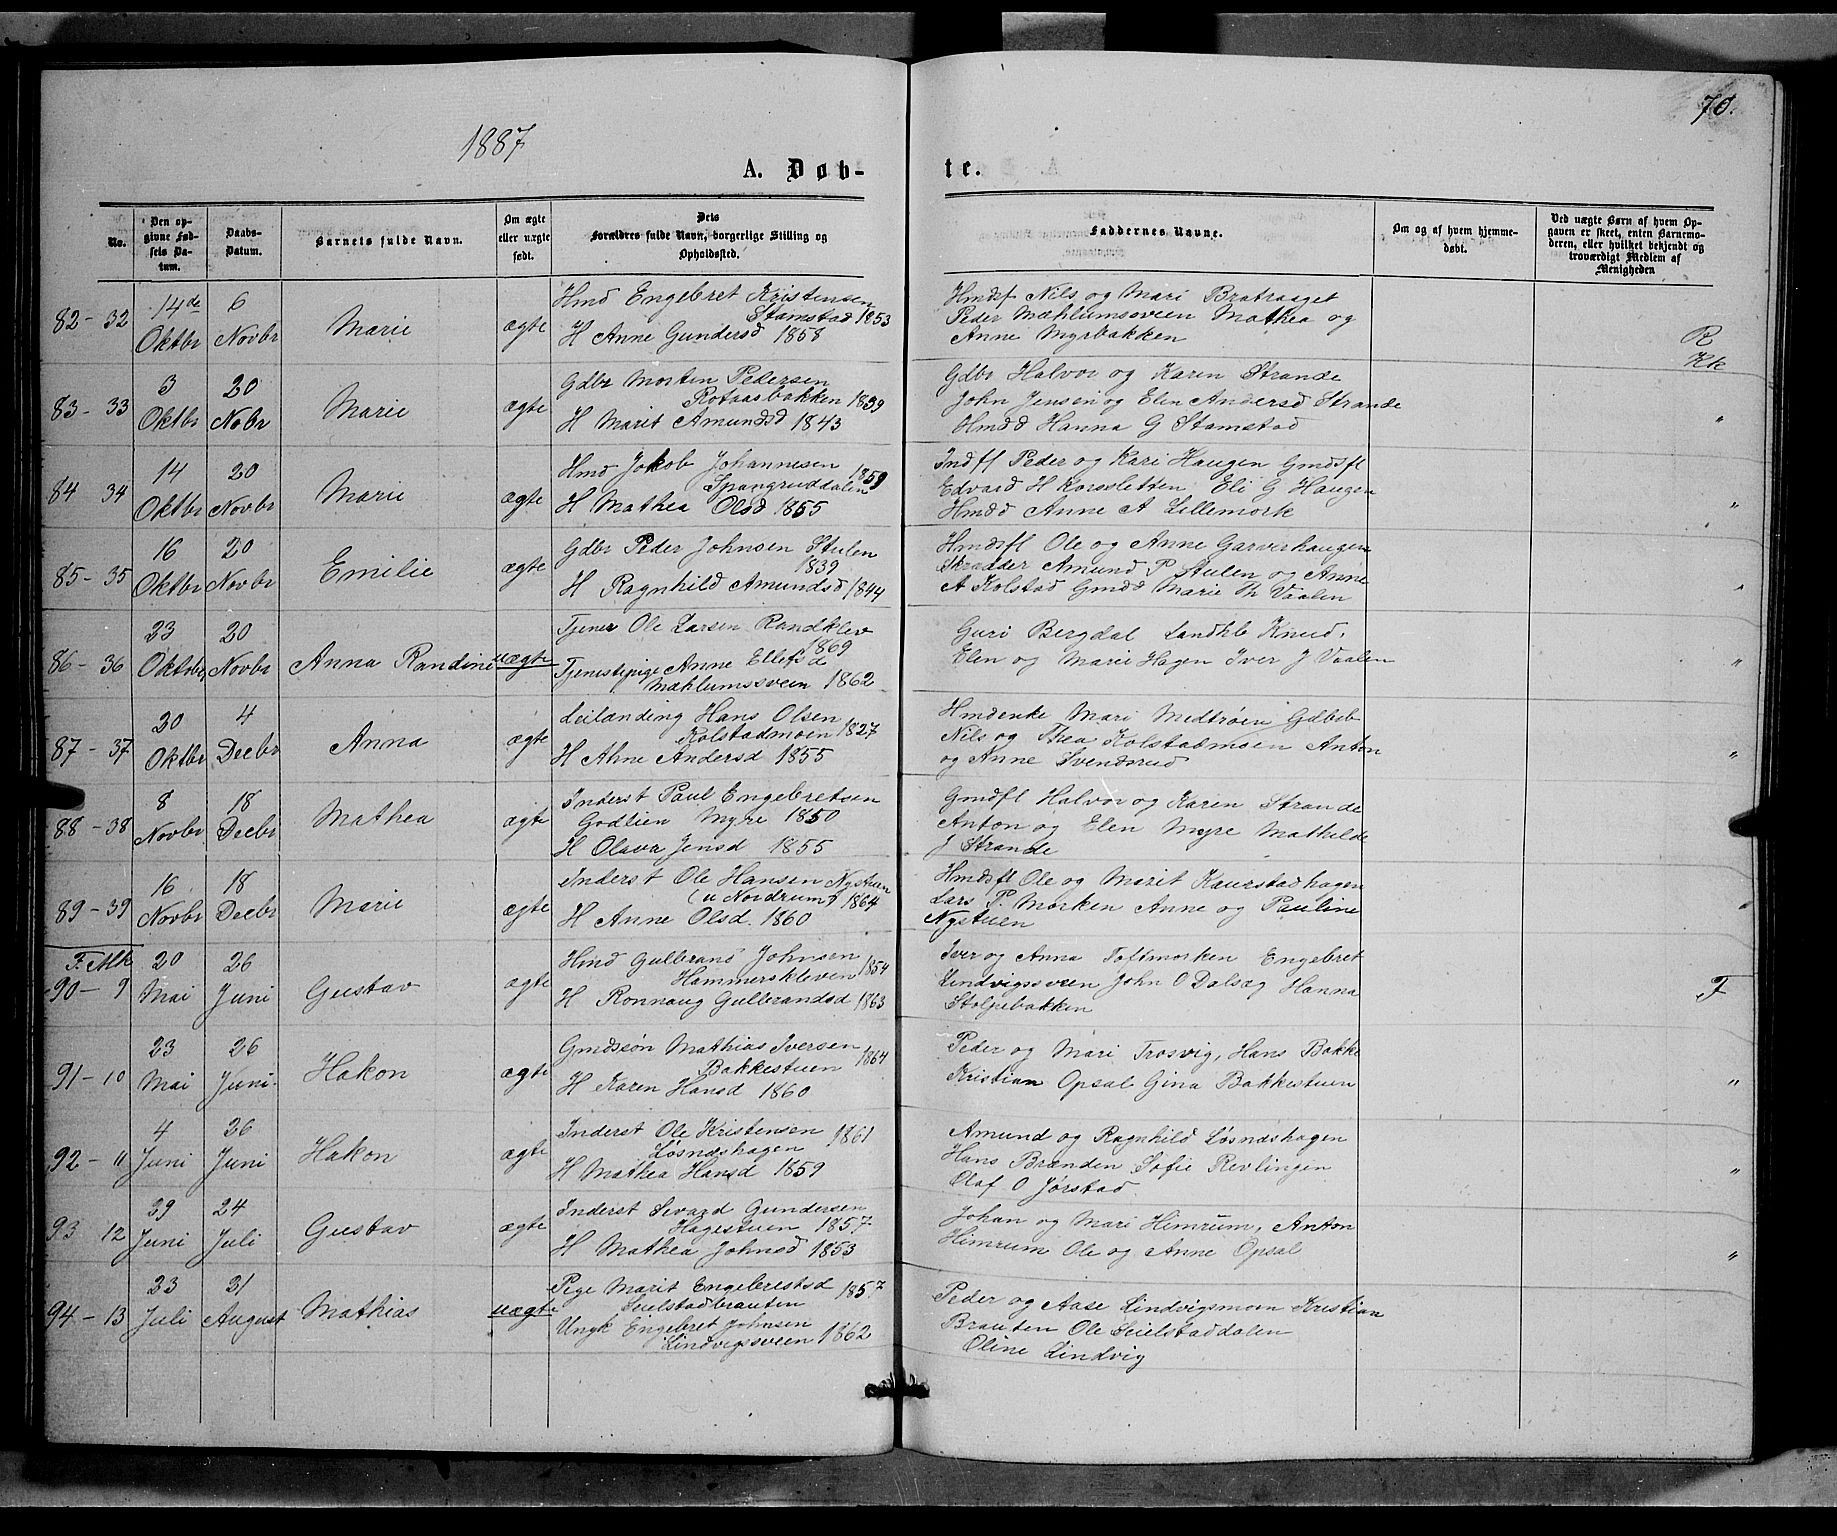 70.
1887
A. Døb-
te.
No.
Den op-
givne Fød-
sels Da-
tum.
Daabs-
Datum.
Barnets fulde Navn.
Om ægte
eller uægte
født.
Dets
Forældres fulde Navn, borgerlige Stilling og
Opholdssted.
Faddernes Navne.
Om og af hvem hjemme-
døbt.
Ved uægte Børn af hvem Op-
gaven er skeet, enten Barnemo-
deren, eller hvilket bekjendt og
troværdigt Medlem af
Menigheden
82-32 14de Oktbr 6 Novbr Marie ægte
Hmd Engebret Kristensen
Stamstad 1853
H Anne Gundersd 1858
Hmdsf Nils og Mari Bratraaget
Peder Mæhlumsveen Mathea og
Anne Myrbakken
R
Kk
83-33 3 Oktbr 20 Nobr Marie ægte
Gdbr Morten Pedersen
Rotaasbakken 1839
H Marit Amundsd 1843
Gdbr Halvor og Karen Strande
John Jensen og Elen Andersd Strande
Hmdd Hanna G Stamstad
"
84 34 14 Oktbr 20 Novbr Marie ægte
Hmd Jokob Johannesen
Spangruddalen 1859
H Mathea Olsd 1855
Indfl Peder og Kari Haugen Gmdsfl
Edvard H Korsletten Eli G Haugen
Hmdd Anne A Lillemork
"
85-35 16 Oktbr 20 Novbr Emilie ægte
Gdbr Peder Johnsen Stulen
1839
H Ragnhild Amundsd 1844
Hmdsfl Ole og Anne Garverhaugen
Skradder Amund P Stulen og Anne
A Kolstad Gmdd Marie Th Vaalen
"
86-36 23 Oktbr 20 Novbr Anna Randine uægte
Tjener Ole Larsen Randklev
1869
Tjenestepige Anne Ellefsd
Mæhlumssveen 1862
Guri Bergdal Landhb Knud,
Elen og Marie Hagen Iver J Vaalen
"
87-37 20 Oktbr 4 Decbr Anna ægte
Leilænding Hans Olsen
Kolstadmoen 1827
H Ahne Andersd 1855
Hmdenke Mari Medtrøen Gdbeb
Nils og Thea Kolstadmoen Anton
og Anne Svendsrud
"
88-38 8 Novbr 18 Decbr Mathea ægte
Inderst Paul Engebretsen
Godlien Myre 1850
H Olava Jensd 1855
Gmdfl Halvor og Karen Strande
Anton og Elen Myre Mathilde
J Strande
89-39 16 Novbr 18 Decbr Marie ægte
Inderst Ole Hansen Nystuen
(u Nordrum) 1864
H Anne Olsd. 1860
Hmdsfl Ole og Marit Kaurstadhagen
Lars P. Morken Anne og Pauline
Nystuen
F. Mk
90-9 20 Mai 26 Juni Gustav ægte
Hmd Gulbrand Johnsen
Hammerskleven 1854
H Ronnaug Gulbrandsd 1863
Iver og Anna Toftmorken Engebret
Lindvigssveen John O Dalseg Hanna
Stolpebakken
F
91-10 23 Mai 26 Juni Hakon ægte
Gmdssøn Mathias Iversen
Bakkestuen 1864
H Karen Hansd 1860
Peder og Mari Trosvig, Hans Bakke
Kristian Opsal Gina Bakkestuen
"
92-11 4 Juni 26 Juni Hakon ægte
Inderst Ole Kristensen 1861
Løsnæshagen
H Mathea Hansd 1859
Amund og Ragnhild Løsnæshagen
Hans Brænden Sofie Revlingen
Olaf O Jørstad
"
93 12 29 Juni 24 Juli Gustav ægte
Inderst Sevard Gundersen
Hagestuen 1857
H Mathea Johnsd 1853
Johan og Mari Himrum, Anton
Himrum Ole og Anne Opsal
"
94-13 23 Juli 31 August Mathias uægte
Pige Marit Engebretsd 1857
Seielstadbrauten
Ungk Engebret Johnsen
Lindvigssveen 1862
Peder og Aase Lindvigsmoen Kristian
Brauten Ole Seielstaddalen
Oline Lindvig